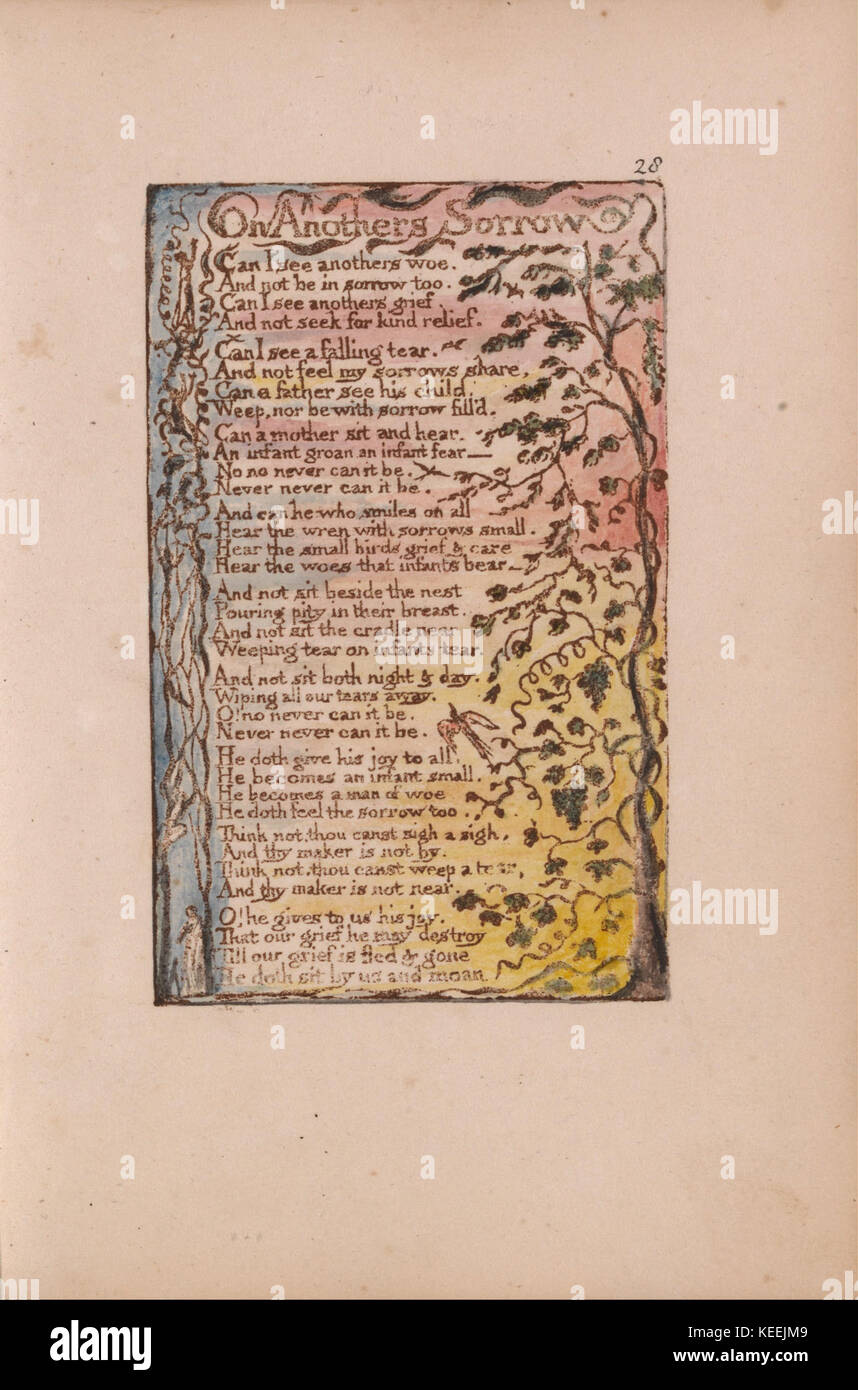 28
On Anothers Sorrow
Can I see anothers woe.
And not be in sorrow too.
Can I see anothers grief.
And not seek for kind relief.
Can I see a falling tear.
And not feel my sorrows share,
Can a father see his child,
Weep, nor be with sorrow fill'd.
Can a mother sit and hear.
An infant groan an infant fear—
No no never can it be.
Never never can it be.
And can he who smiles on all
Hear the wren with sorrows small.
Hear the small birds grief & care
Hear the woes that infants bear—
And not sit beside the nest
Pouring pity in their breast.
And not sit the cradle near
Weeping tear on infants tear.
And not sit both night & day.
Wiping all our tears away.
O! no never can it be.
Never never can it be.
He doth give his joy to all.
He becomes an infant small.
He becomes a man of woe
He doth feel the sorrow too.
Think not, thou canst sigh a sigh,
And thy maker is not by.
Think not, thou canst weep a tear,
And thy maker is not near.
O! he gives to us his joy.
That our grief he may destroy
Till our grief is fled & gone
He doth sit by us and moan
alamy stock photo
KEEJM9
www.alamy.com